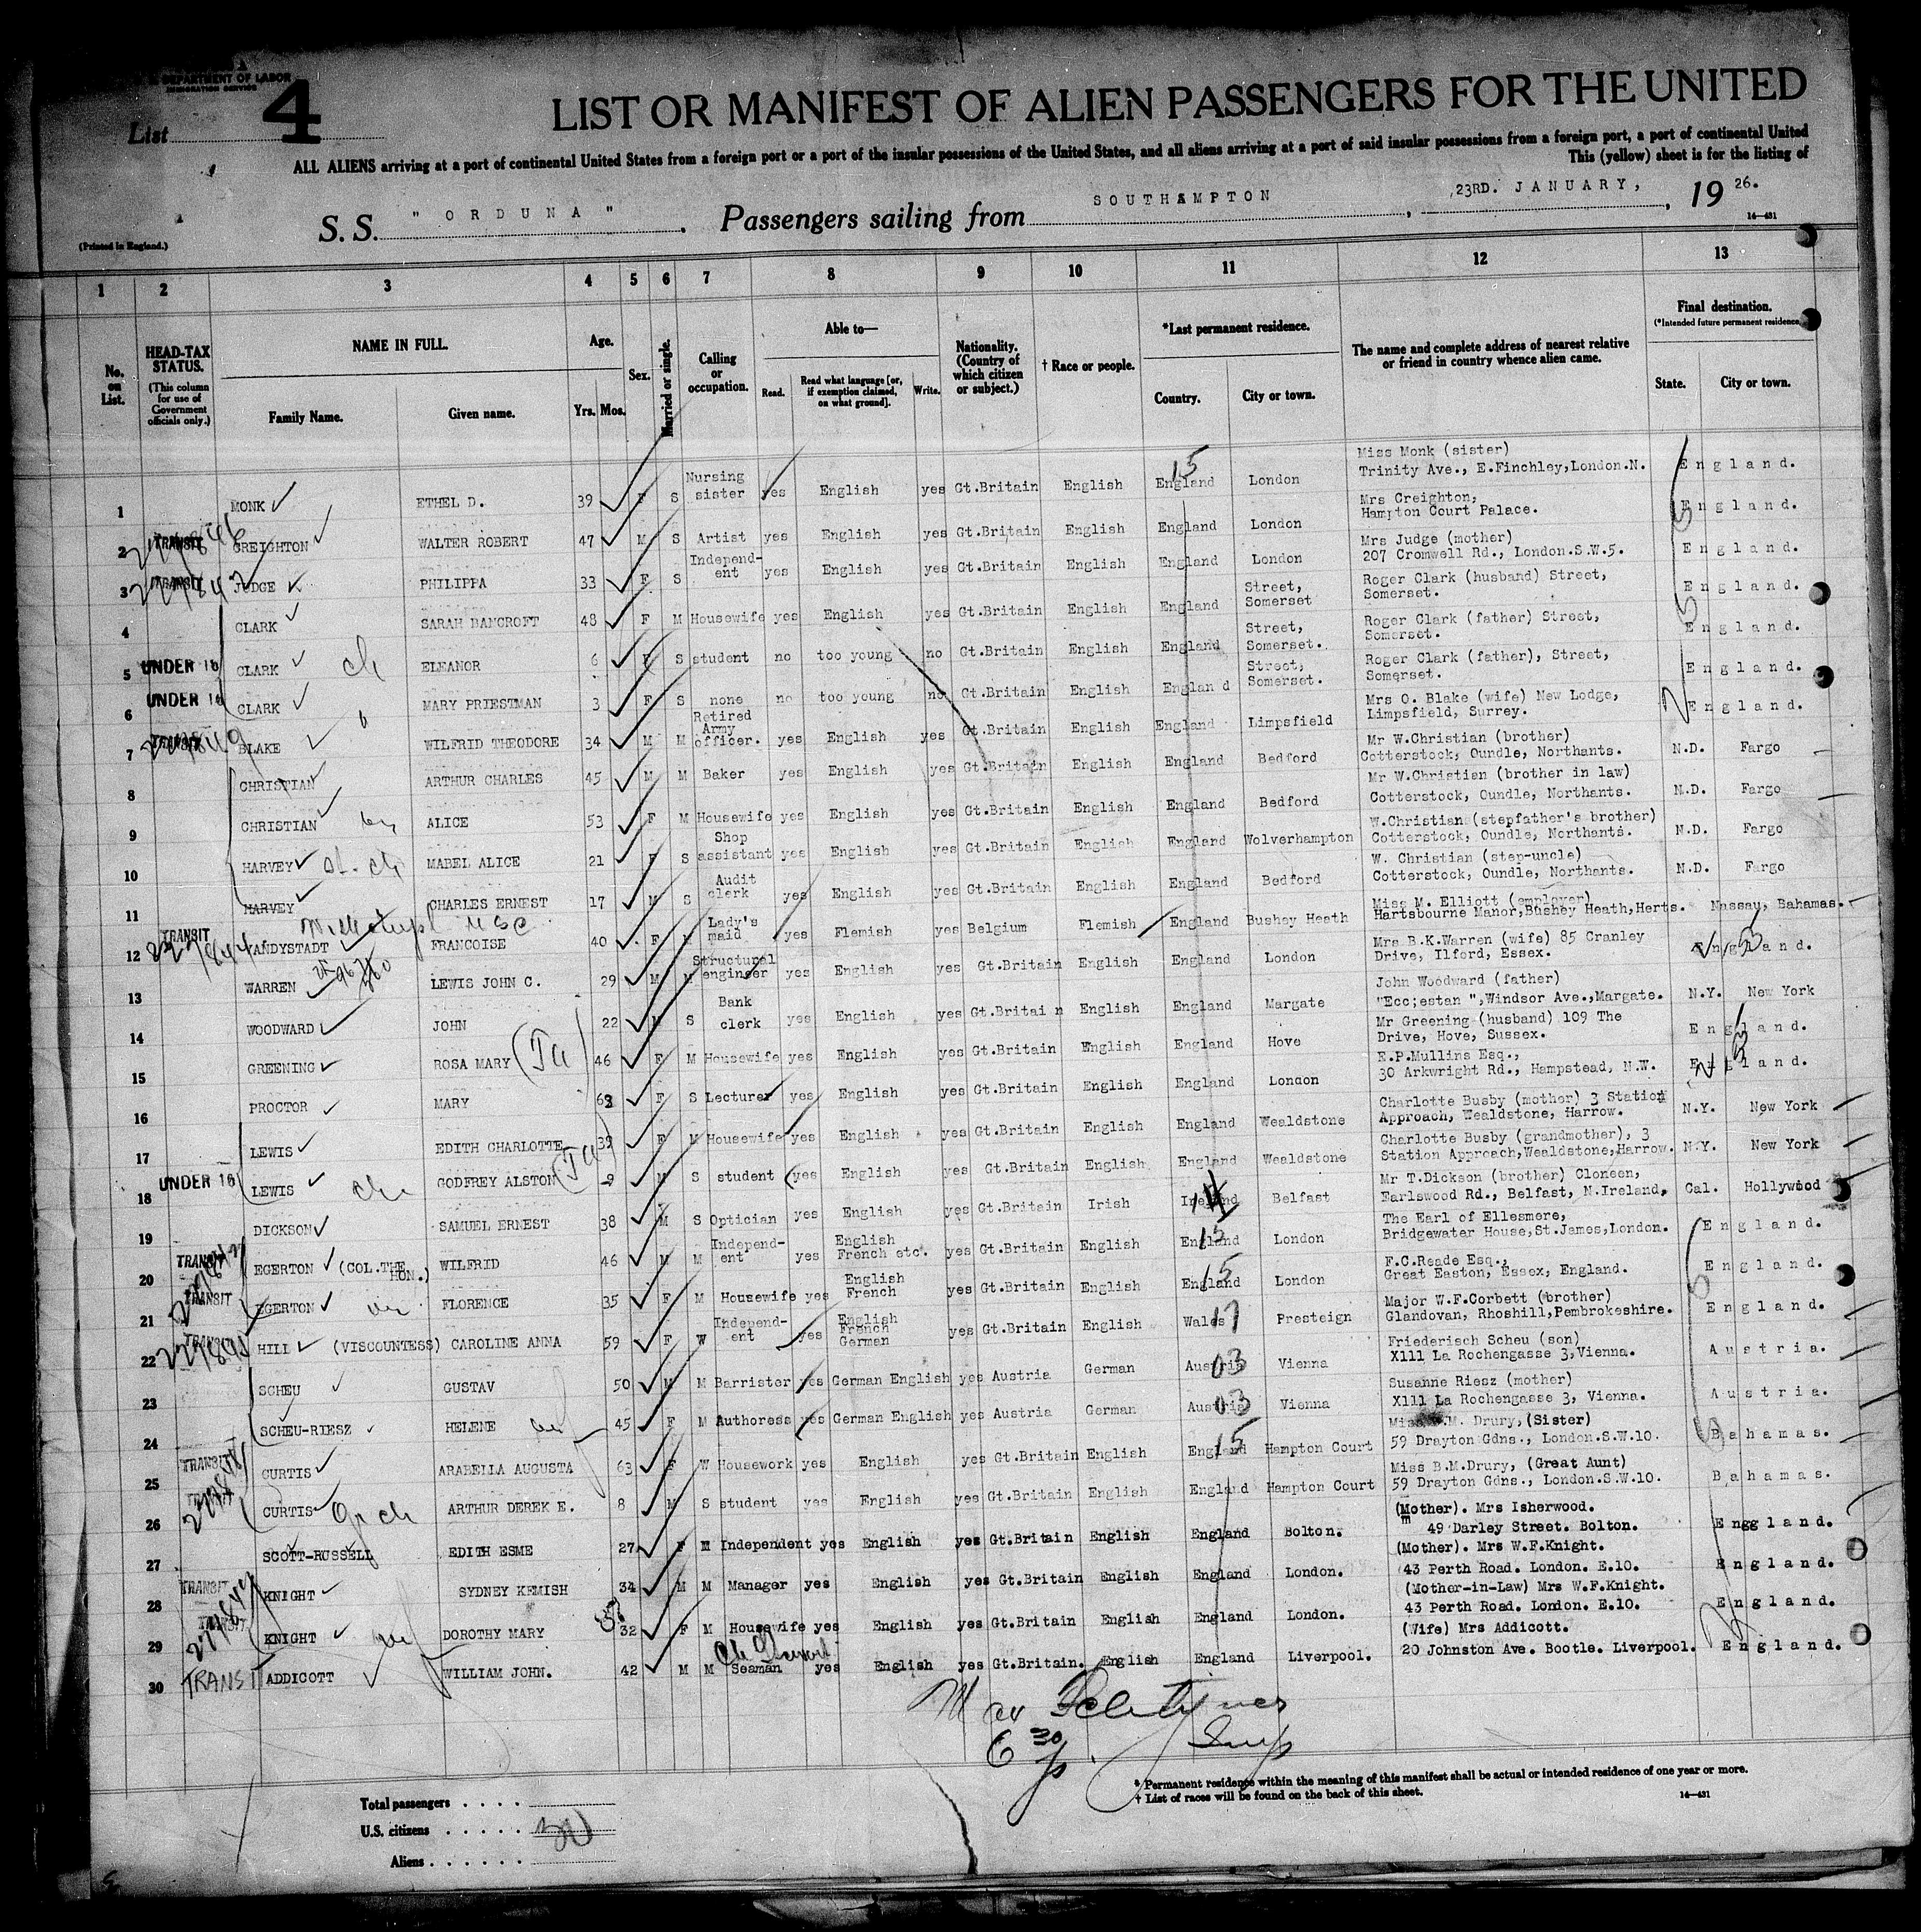 DEPARTMENT OF LABOR
IMMIGRATION SERVICE
List 4
LIST OR MANIFEST OF ALIEN PASSENGERS FOR THE UNITED
ALL ALIENS arriving at a port of continental United States from a foreign port or a port of the insular possessions of the United States, and all aliens arriving at a port of said insular possessions from a foreign port, a port of continental United
This (yellow) sheet is for the listing of
S. S. "ORDUNA". Passengers sailing from SOUTHAMPTON, 23RD. JANUARY, 1926.
(Printed in England.)
14—431
1 2 3 4 5 6 7 8 9 10 11 12 13
No. on List.
HEAD-TAX STATUS.
(This column for use of Government officials only.)
NAME IN FULL.
Family Name. Given name.
Age.
Yrs. Mos.
Sex.
Married or single.
Calling or occupation.
Able to—
Read. Read what language [or, if exemption claimed, on what ground]. Write.
Nationality. (Country of which citizen or subject.)
† Race or people.
*Last permanent residence.
Country. City or town.
The name and complete address of nearest relative or friend in country whence alien came.
Final destination.
(*Intended future permanent residence.)
State. City or town.
1 MONK ETHEL D. 39 F S Nursing sister yes English yes Gt.Britain English England London Miss Monk (sister) Trinity Ave., E.Finchley,London.N. England.
2 TRANSIT CREIGHTON WALTER ROBERT 47 M S Artist yes English yes Gt.Britain English England London Mrs Creighton, Hampton Court Palace. England.
3 TRANSIT JUDGE PHILIPPA 33 F S Independ-ent yes English yes Gt.Britain English England London Mrs Judge (mother) 207 Cromwell Rd., London.S.W.5. England.
4 CLARK SARAH BANCROFT 48 F M Housewife yes English yes Gt.Britain English England Street, Somerset Roger Clark (husband) Street, Somerset. England.
5 UNDER 16 CLARK ch ELEANOR 6 F S student no too young no Gt.Britain English England Street, Somerset. Roger Clark (father) Street, Somerset. England.
6 UNDER 16 CLARK MARY PRIESTMAN 3 F S none no too young no Gt.Britain English England Street, Somerset. Roger Clark (father), Street, Somerset. England.
7 TRANSIT BLAKE WILFRID THEODORE 34 M M Retired Army officer. yes English yes Gt.Britain English England Limpsfield Mrs O. Blake (wife) New Lodge, Limpsfield, Surrey. England.
8 CHRISTIAN ARTHUR CHARLES 45 M M Baker yes English yes Gt.Britain English England Bedford Mr W.Christian (brother) Cotterstock, Oundle, Northants. N.D. Fargo
9 CHRISTIAN ALICE 53 F M Housewife yes English yes Gt.Britain English England Bedford Mr W.Christian (brother in law) Cotterstock, Oundle, Northants. N.D. Fargo
10 HARVEY MABEL ALICE 21 F S Shop assistant yes English yes Gt.Britain English England Wolverhampton W.Christian (stepfather's brother) Cotterstock, Oundle, Northants. N.D. Fargo
11 HARVEY CHARLES ERNEST 17 M S Audit clerk yes English yes Gt.Britain English England Bedford W. Christian (step-uncle) Cotterstock, Oundle, Northants. N.D. Fargo
12 TRANSIT VANDYSTADT FRANCOISE 40 F Lady's maid yes Flemish yes Belgium Flemish England Bushey Heath Miss M. Elliott (employer) Hartsbourne Manor,Bushey Heath,Herts. Nassau, Bahamas.
13 WARREN LEWIS JOHN C. 29 M M Structural engineer yes English yes Gt.Britain English England London Mrs B.K.Warren (wife) 85 Cranley Drive, Ilford, Essex. England.
14 WOODWARD JOHN 22 M S Bank clerk yes English yes Gt.Britai n English England Margate John Woodward (father) "Ecc;estan ",Windsor Ave.,Margate. N.Y. New York
15 GREENING ROSA MARY 46 F M Housewife yes English yes Gt.Britain English England Hove Mr Greening (husband) 109 The Drive, Hove, Sussex. England.
16 PROCTOR MARY 63 F S Lecturer yes English yes Gt.Britain English England London E.P.Mullins Esq., 30 Arkwright Rd., Hampstead, N.W. England.
17 LEWIS EDITH CHARLOTTE 39 F M Housewife yes English yes Gt.Britain English England Wealdstone Charlotte Busby (mother) 3 Station Approach, Wealdstone, Harrow. N.Y. New York
18 UNDER 16 LEWIS GODFREY ALSTON 9 M S student yes English yes Gt.Britain English England Wealdstone Charlotte Busby (grandmother), 3 Station Approach,Wealdstone,Harrow. N.Y. New York
19 DICKSON SAMUEL ERNEST 38 M S Optician yes English yes Gt.Britain Irish Ireland Belfast Mr T.Dickson (brother) Cloneen, Earlswood Rd., Belfast, N.Ireland, Cal. Hollywood
20 TRANSIT EGERTON (COL.THE HON.) WILFRID 46 M M Independ-ent yes English French etc. yes Gt.Britain English England London The Earl of Ellesmere, Bridgewater House,St.James,London. England.
21 TRANSIT EGERTON FLORENCE 35 F M Housewife yes English French yes Gt.Britain English England London F.C.Reade Esq., Great Easton, Essex, England. England.
22 TRANSIT HILL (VISCOUNTESS) CAROLINE ANNA 59 F W Independ-ent yes English French German yes Gt.Britain English Wales Presteign Major W.F.Corbett (brother) Glandovan, Rhoshill,Pembrokeshire. England.
23 SCHEU GUSTAV 50 M M Barrister yes German English yes Austria German Austria Vienna Friederisch Scheu (son) X111 La Rochengasse 3,Vienna. Austria.
24 SCHEU-RIESZ HELENE 45 F M Authoress yes German English yes Austria German Austria Vienna Susanne Riesz (mother) X111 La Rochengasse 3, Vienna. Austria.
25 TRANSIT CURTIS ARABELLA AUGUSTA 63 F W Housework yes English yes Gt.Britain English England Hampton Court Miss M. Drury, (Sister) 59 Drayton Gdns., London.S.W.10. Bahamas.
26 TRANSIT CURTIS ARTHUR DEREK E. 8 M S student yes English yes Gt.Britain English England Hampton Court Miss B.M.Drury, (Great Aunt) 59 Drayton Gdns., London.S.W.10. Bahamas.
27 SCOTT-RUSSELL EDITH ESME 27 F M Independent yes English yes Gt.Britain English England Bolton. (Mother). Mrs Isherwood. 49 Darley Street. Bolton. Enggland.
28 TRANSIT KNIGHT SYDNEY KEMISH 34 M M Manager yes English yes Gt.Britain English England London. (Mother). Mrs W.F.Knight. 43 Perth Road. London. E.10. England.
29 TRANSIT KNIGHT DOROTHY MARY 32 F M Housewife yes English yes Gt.Britain English England London. (Mother-in-Law) Mrs W.F.Knight. 43 Perth Road. London. E.10. England.
30 TRANSIT ADDICOTT WILLIAM JOHN. 42 M M Seaman yes English yes Gt.Britain. English England Liverpool. (Wife) Mrs Addicott. 20 Johnston Ave. Bootle. Liverpool. England.
6 30 p
Insp
Total passengers
U.S. citizens 30
Aliens
* Permanent residence within the meaning of this manifest shall be actual or intended residence of one year or more.
† List of races will be found on the back of this sheet.
14—431